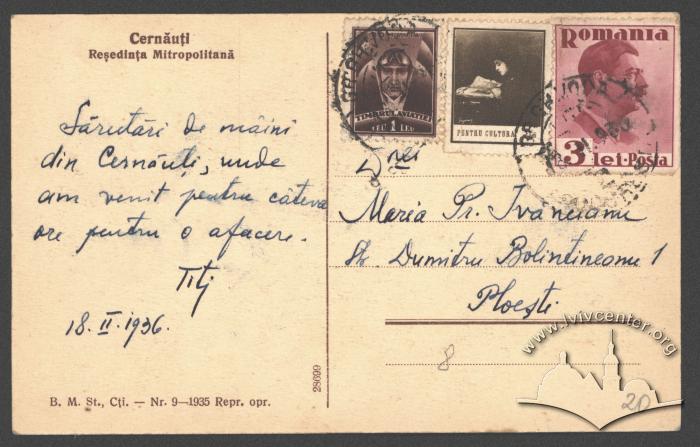 Cernăuți
Reședința Mitropolitană
Sărutări de mâini
din Cernăuți, unde
am venit pentru câteva
ore pentru o afacere.
18.II.1936.
B. M. St., Cți. — Nr. 9—1935 Repr. opr.
28699
TIMBRUL AVIAȚIEI
1 LEU
PENTRU CULTURA
Romania
3 lei-Posta
Dnei
Maria Pr. Ivăneianu
Str. Dumitru Bolintineanu 1
Ploești
8
20
www.lvivcenter.org